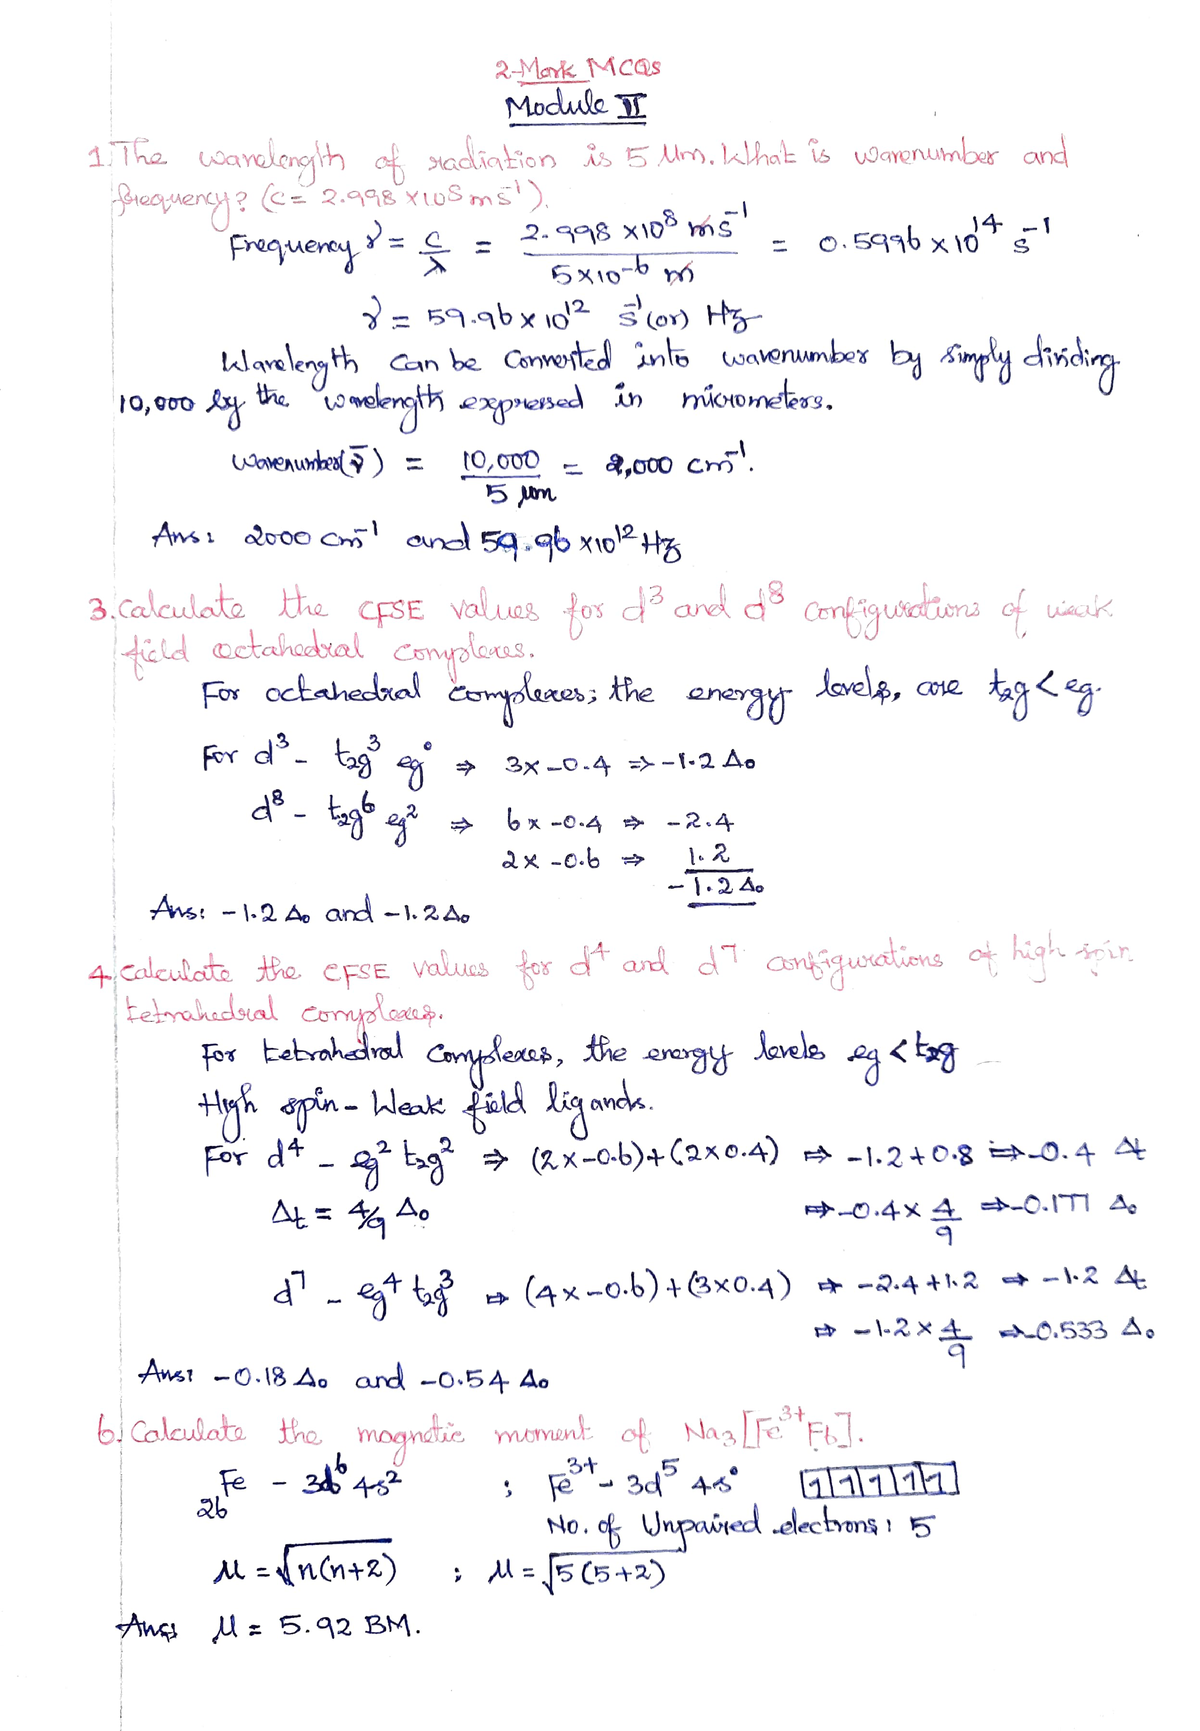 2-Mark MCQs
Module II
1. The wavelength of radiation is 5 μm. What is wavenumber and
frequency? (c = 2.998 x108 ms⁻¹).
Frequency γ = c/λ = 2.998 x10⁸ ms⁻¹ / 5x10⁻⁶ m = 0.5996 x 10¹⁴ s⁻¹
γ = 59.96 x 10¹² s⁻¹ (or) Hz
Wavelength can be converted into wavenumber by simply dividing
10,000 by the wavelength expressed in micrometers.
Wavenumber(ν̅) = 10,000 / 5 μm = 2,000 cm⁻¹.
Ans: 2000 cm⁻¹ and 59.96 x10¹² Hz
3. Calculate the CFSE values for d³ and d⁸ configurations of weak
field octahedral complexes.
For octahedral complexes; the energy levels, are t₂g < eg.
For d³ - t₂g³ eg⁰ ⇒ 3x-0.4 ⇒ -1.2 Δo
d⁸ - t₂g⁶ eg² ⇒ 6x -0.4 ⇒ -2.4
2x -0.6 ⇒ 1.2
-1.2 Δo
Ans: -1.2 Δo and -1.2 Δo
4. Calculate the CFSE values for d⁴ and d⁷ configurations of high spin
tetrahedral complexes.
For tetrahedral complexes, the energy levels eg < t₂g
High spin - Weak field ligands.
For d⁴ - eg² t₂g² ⇒ (2x-0.6)+(2x0.4) ⇒ -1.2+0.8 ⇒ -0.4 Δt
Δt = 4/9 Δo ⇒ -0.4x 4/9 ⇒ -0.177 Δo
d⁷ - eg⁴ t₂g³ ⇒ (4x-0.6)+(3x0.4) ⇒ -2.4+1.2 ⇒ -1.2 Δt
⇒ -1.2 x 4/9 ⇒ -0.533 Δo
Ans: -0.18 Δo and -0.54 Δo
6. Calculate the magnetic moment of Na₃[Fe³⁺F6].
₂₆Fe - 3d⁶ 4s² ; Fe³⁺ - 3d⁵ 4s⁰ 1 1 1 1 1
No. of Unpaired electrons: 5
μ = √n(n+2) ; μ = √5(5+2)
Ans: μ = 5.92 BM.